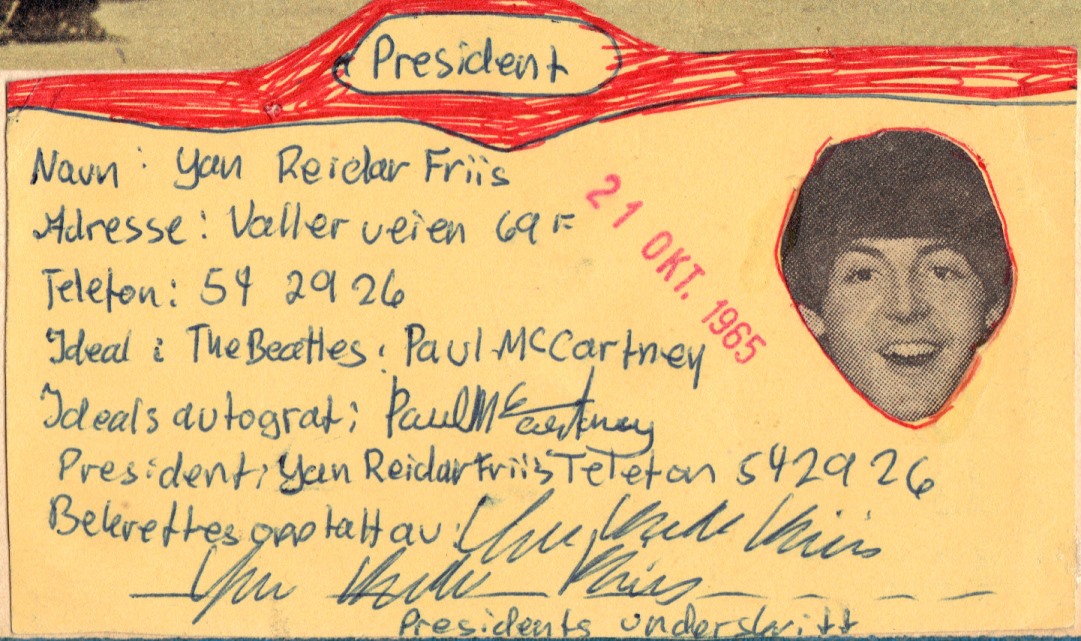 President
Navn: Yan Reidar Friis
Adresse: Valler veien 69 F
21 OKT. 1965
Telefon: 54 29 26
Ideal: The Beatles: Paul McCartney
Ideals autograf: Paul McCartney
President: Yan Reidar Friis Telefon 54 29 26
Bekreftes opptatt av: Yan Reidar Friis
Yan Reidar Friis
Presidents underskrift